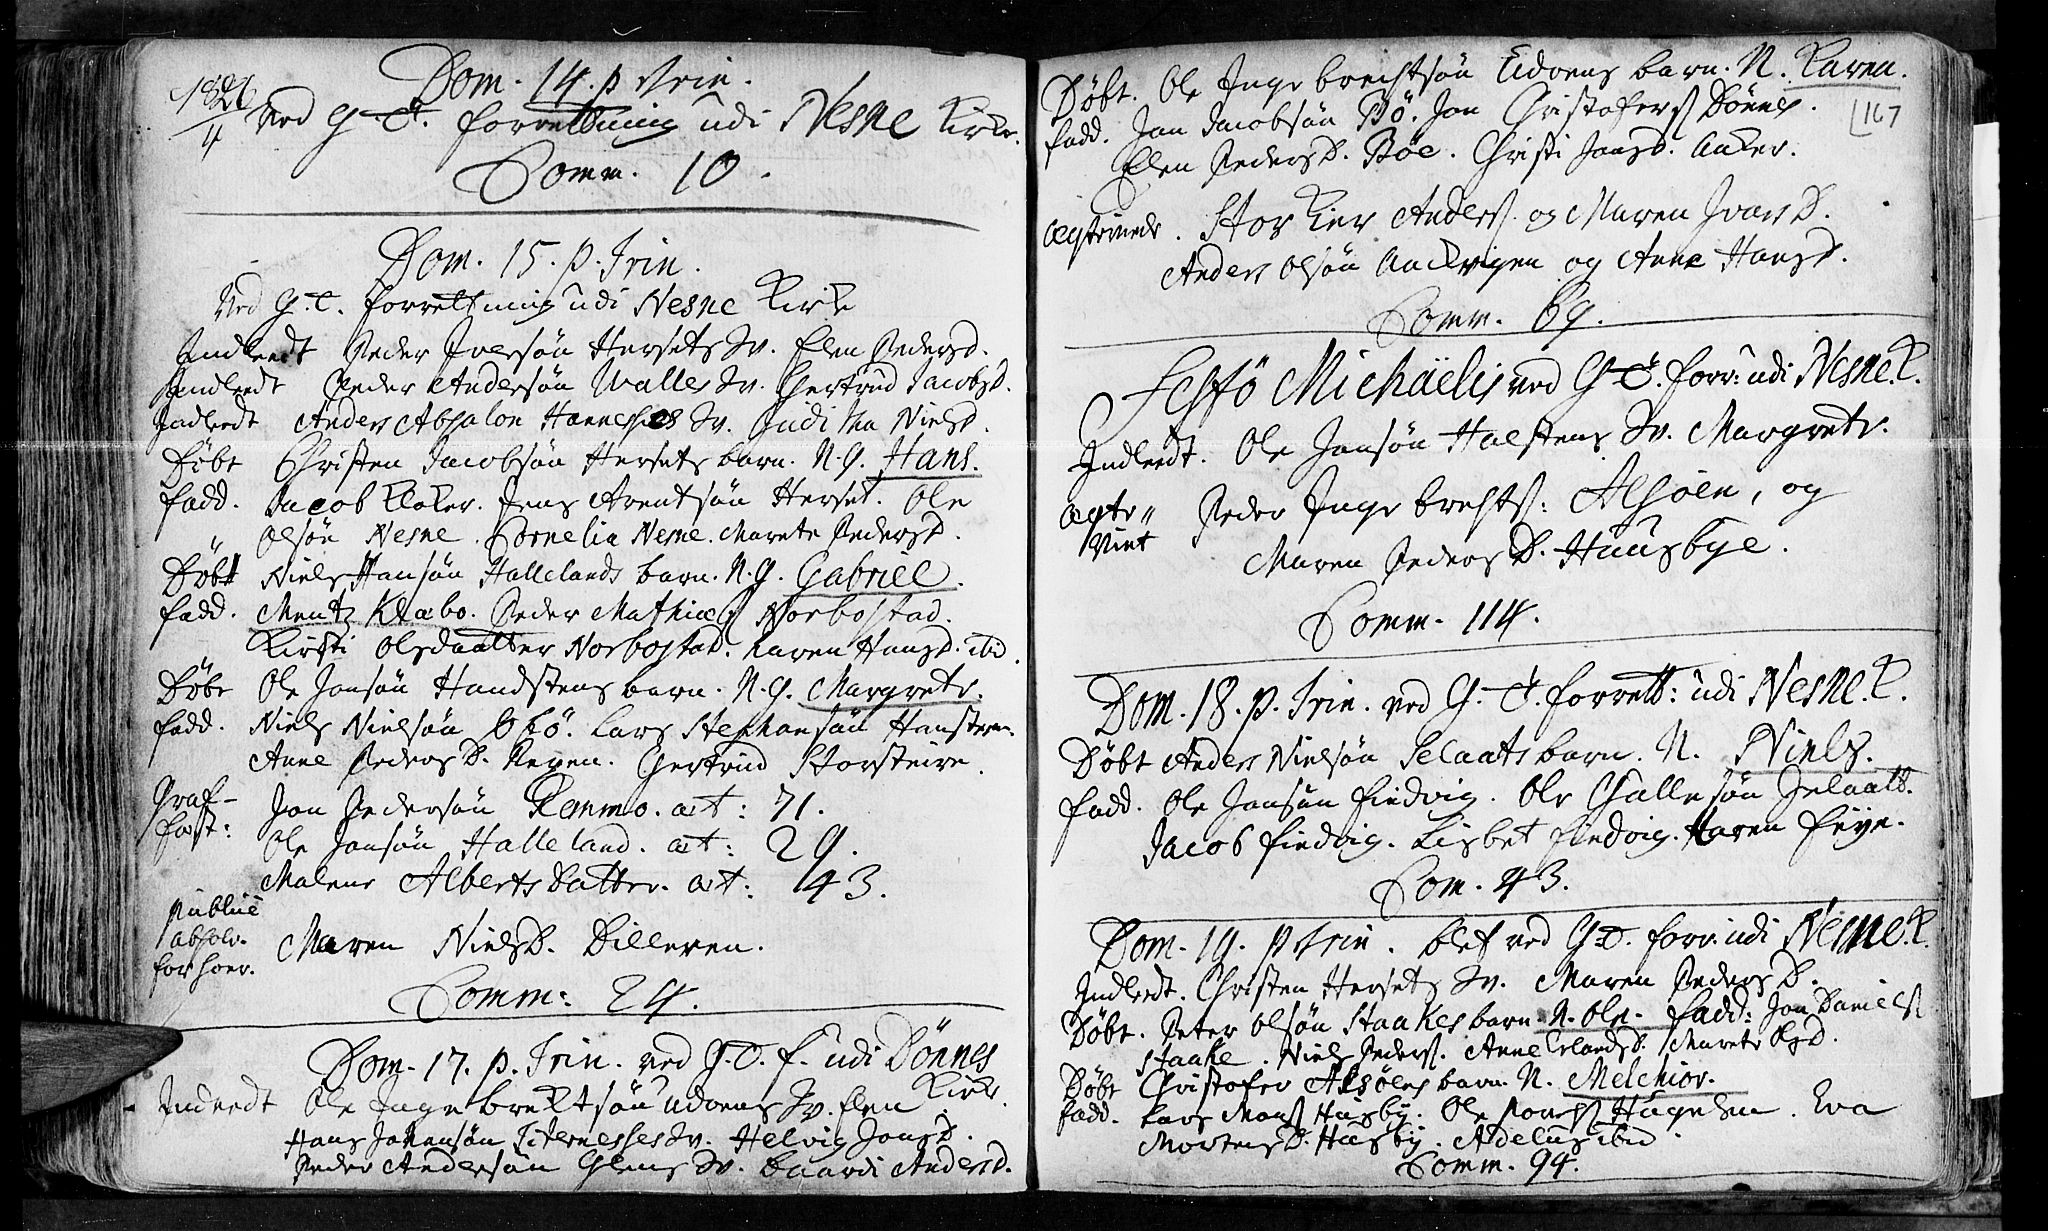 Dom. 14. p Trin.
Ved G-T. forrettning udi Nesne Kirke.
Comm. 10.
Dom. 15. p. Trin.
Ved G. T. forrettning udi Nesne Kirke
Indleedt Peder Iversøn Hersets Qv. Elen Pedersd.
Indleedt Peder Andersøn Walles Qv. Gertrud Jacobsd.
Indleedt Anders Absalon Qv. Juditha Nielsd.
Døbt Christen Jacobsøn Hersets barn. N. G. Hans.
fadd. Jacob Kloker. Jens Arentsøn Herset. Ole
Olsøn Nesne. Cornelia Nesne. Marete Pedersd.
Døbt Niels Hansøn Hallelands barn. N. G. Gabriel.
fadd. Mentz Klæbo. Peder Mathiæs Norbostad.
Kirsti Olsdaatter Norbostad. Karen Hansd. ibid.
Døbt Ole Jansøn Handstens barn. N. G. Margrete.
fadd. Niels Nielsøn Lars Stephansøn Hansteen.
Anne Pedersd. Gertrud Storsteire.
Graf-
fæst: Jon Pedersøn Remmo. æt: 71.
Ole Jansøn Halleland. æt: 29.
Malene Albertsdatter. æt: 43.
Publice
absolv.
for hoer. Maren Nielsd. Dilleren.
Comm: 24.
Dom. 17. p. Trin. ved G. T. f. udi Dønnes
Kirke.
Indleedt Ole Ingebrektsøn Udvens Qv. Elen
Hans Johansøn Qv. Helvig Jonsd.
Peder Andersøn Glens Qv. Baardi Andersd.
167
Døbt. Ole Ingebrechtsøn Udvens barn. N. Karen.
fadd. Jan Jacobsøn Bø. Jon Christofers Dønnes.
Elen Pedersd. Bøe. Christi Jonsd. Anker.
ægteviede. Stor Kier Anders. og Maren Ivars D.
Anders Olsøn og Anne Hansd.
Comm. 69.
Festo Michaëlis ved G-T. forr: udi Nesne. K.
Indleedt. Ole Jansøn Halstens Qv. Margrete.
ægte
Viet Peder Ingebrechts: Alsøen, og
Maren Peders D. Huusbye.
Comm. 114.
Dom. 18. p. Trin. ved G-T. forrett: udi Nesne. K.
Døbt Anders Nielsøn Selaats barn. N. Niels.
fadd. Ole Jansøn Findvig. Ole Selaatt.
Jacob Findvig. Lisbet Findvig. Maren
Com. 43.
Dom. 19. p Trin. blef ved G-T. forr. udi Nesne. K.
Indleedt. Christen Hersets Qv. Maren Peders D.
Døbt. Peter Olsøn Staakes barn. N. Ole. fadd: Jon Daniels
Staake. Niels Peders. Anne Erlandsd. Marete
Døbt Christofer Alsøens barn. N. Melchior.
fadd. Lars Mons Husby. Ole Hugelsen. Eva
Mortens D. Husby. Adelus ibid.
Comm. 94.